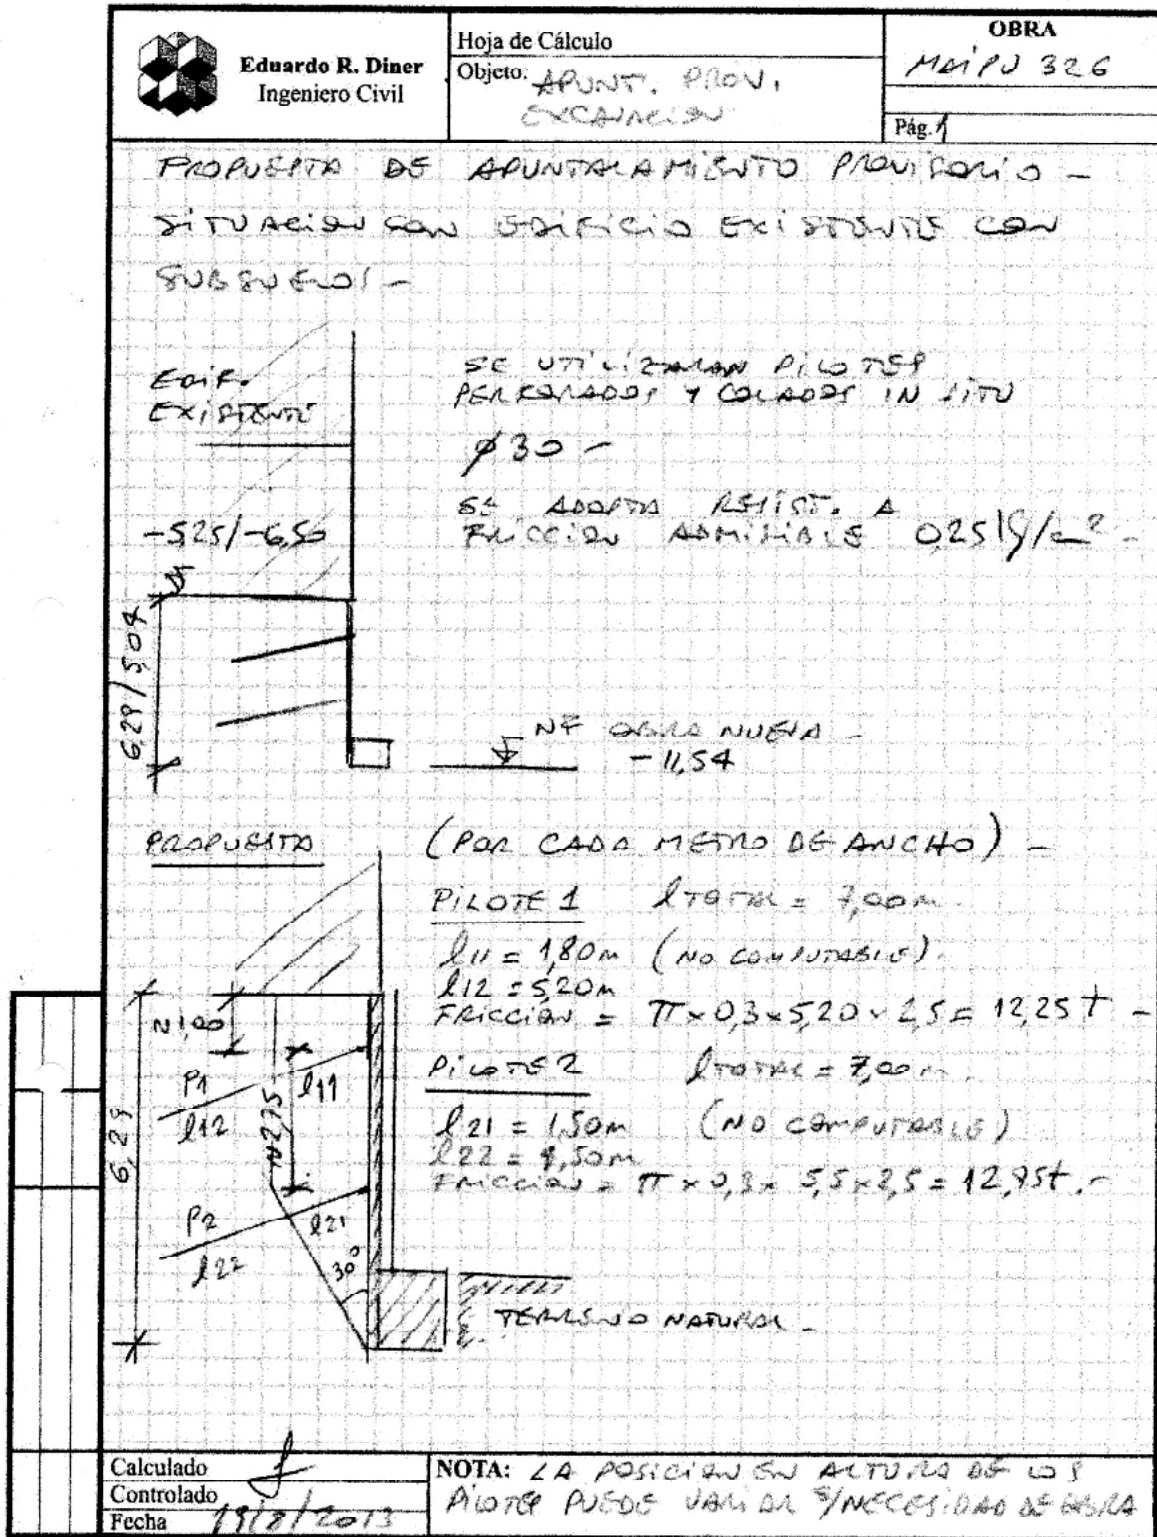 Eduardo R. Diner
Ingeniero Civil
Hoja de Cálculo
Objeto: APUNT. PROV.
EXCAVACION
OBRA
MAIPU 326
Pág. 1
PROPUESTA DE APUNTALAMIENTO PROVISORIO -
SITUACION CON EDIFICIO EXISTENTE CON
SUBSUELOS -
EDIF.
EXISTENTE
SE UTILIZARAN PILOTES
PERFORADOS Y COLADOS IN SITU
ø30 -
-5,25/-6,50
SE ADOPTA RESIST. A
FRICCION ADMISIBLE 0,25 kg/cm² -
6,29/5,04
NF OBRA NUEVA -
-11,54
PROPUESTA (POR CADA METRO DE ANCHO) -
PILOTE 1 l TOTAL = 7,00m
l11 = 1,80m (NO COMPUTABLE).
l12 = 5,20m
FRICCION = π x 0,3 x 5,20 x 2,5 = 12,25 T -
PILOTE 2 l TOTAL = 7,00m.
l21 = 1,50m (NO COMPUTABLE)
l22 = 5,50m
FRICCION = π x 0,3 x 5,5 x 2,5 = 12,95t. -
N1,00
P1
l11
l12
N2,75
6,29
P2
l21
l22
30°
TERRENO NATURAL -
Calculado
Controlado
Fecha 19/8/2013
NOTA: LA POSICION EN ALTURA DE LOS
PILOTES PUEDE VARIAR S/NECESIDAD DE OBRA